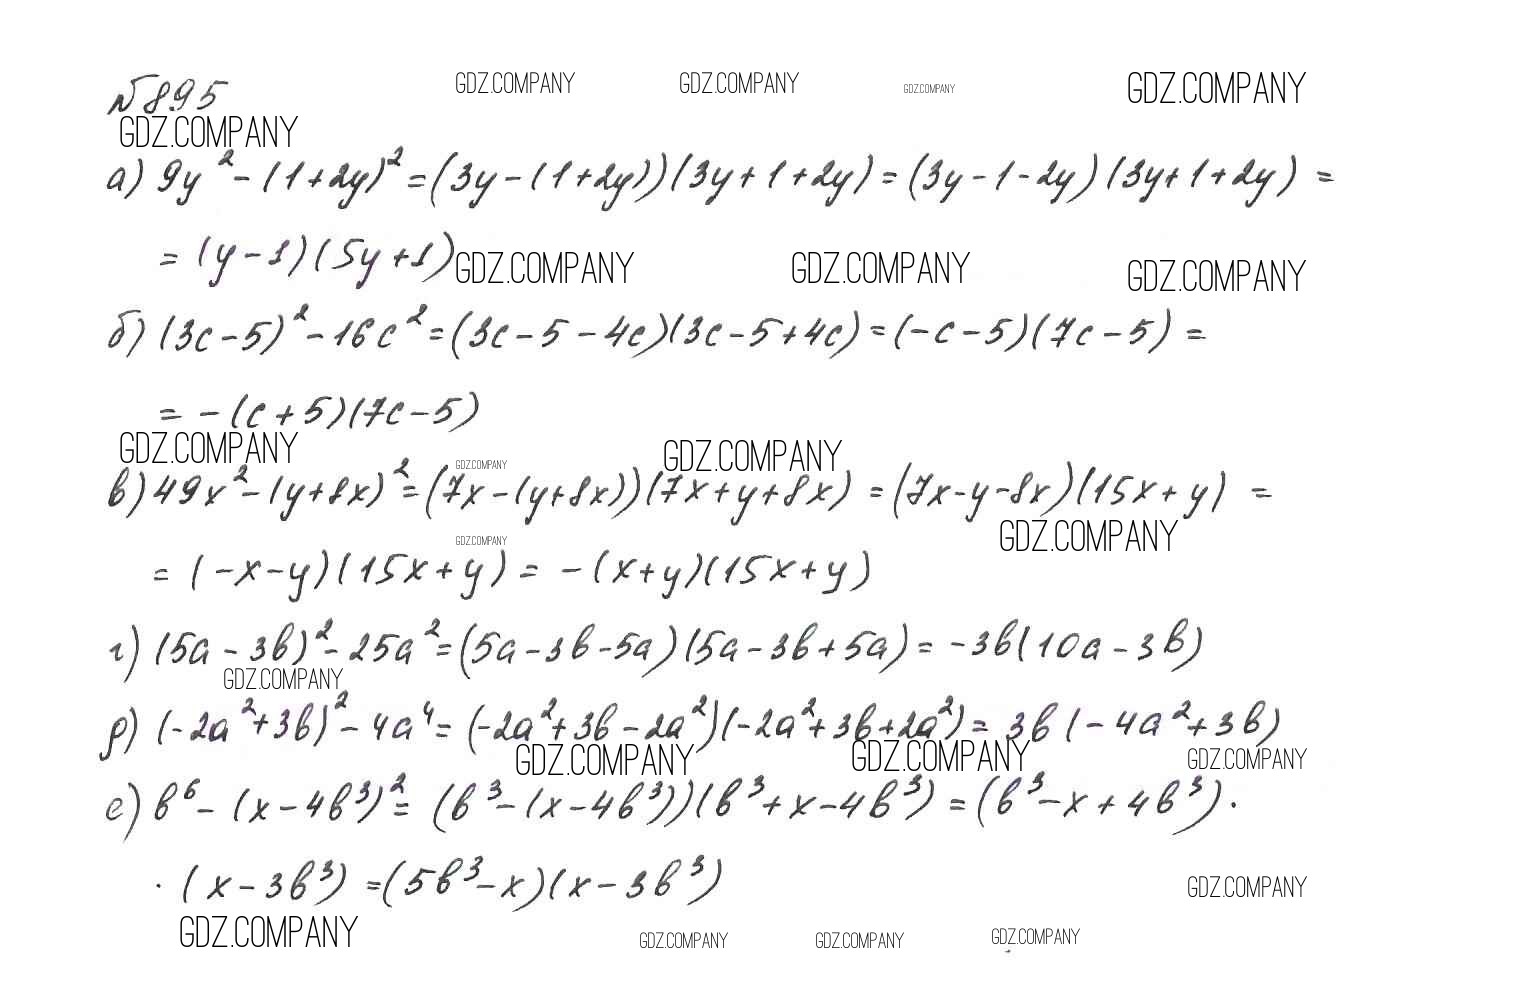 №895
GDZ.COMPANY GDZ.COMPANY GDZ.COMPANY GDZ.COMPANY
GDZ.COMPANY
а) 9y² - (1+2y)² = (3y - (1+2y))(3y+1+2y) = (3y-1-2y)(3y+1+2y) =
= (y-1)(5y+1)
GDZ.COMPANY GDZ.COMPANY GDZ.COMPANY
б) (3c-5)² - 16c² = (3c-5-4c)(3c-5+4c) = (-c-5)(7c-5) =
= -(c+5)(7c-5)
GDZ.COMPANY GDZ.COMPANY GDZ.COMPANY
в) 49x² - (y+8x)² = (7x-(y+8x))(7x+y+8x) = (7x-y-8x)(15x+y) =
GDZ.COMPANY GDZ.COMPANY
= (-x-y)(15x+y) = -(x+y)(15x+y)
г) (5a-3b)² - 25a² = (5a-3b-5a)(5a-3b+5a) = -3b(10a-3b)
GDZ.COMPANY
д) (-2a²+3b)² - 4a⁴ = (-2a²+3b-2a²)(-2a²+3b+2a²) = 3b(-4a²+3b)
GDZ.COMPANY GDZ.COMPANY GDZ.COMPANY
е) b⁶ - (x-4b³)² = (b³-(x-4b³))(b³+x-4b³) = (b³-x+4b³)·
· (x-3b³) = (5b³-x)(x-3b³)
GDZ.COMPANY
GDZ.COMPANY GDZ.COMPANY GDZ.COMPANY GDZ.COMPANY